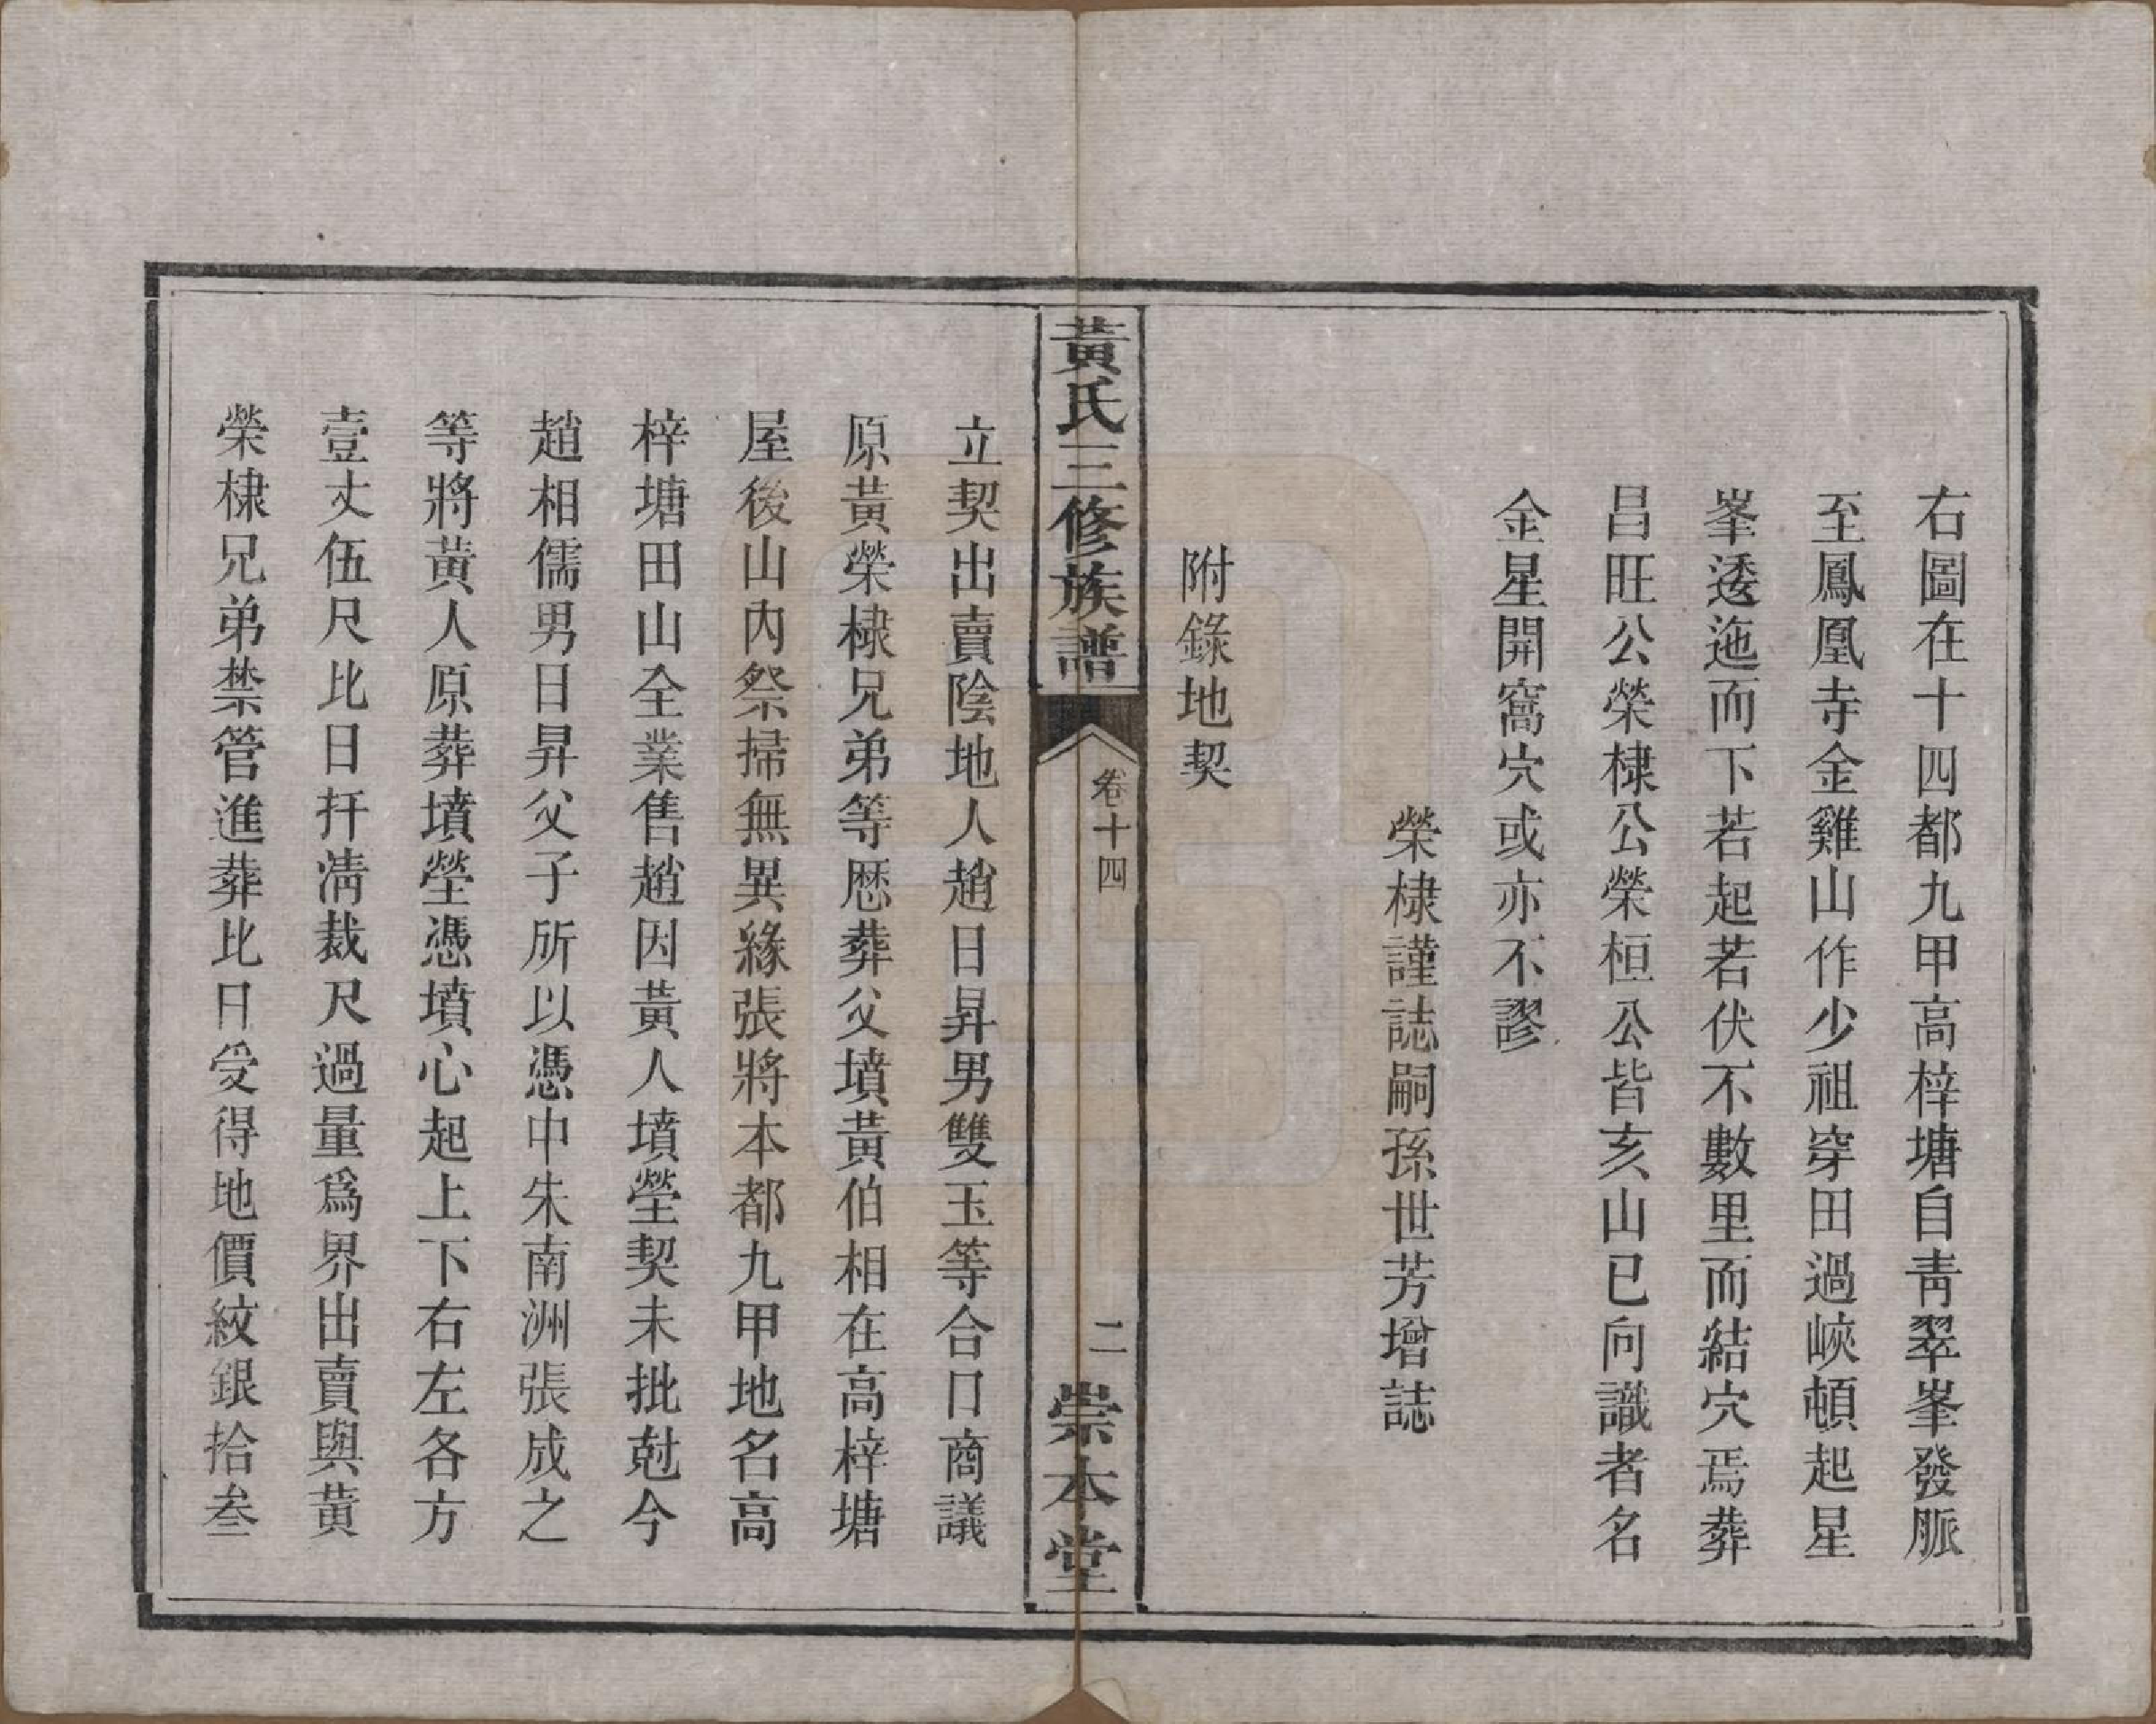 右圖在十四都九甲高梓塘自靑翠峯發脈
至鳳凰寺金雞山作少祖穿田過峽頓起星
峯逶迤而下若起若伏不數里而結穴焉葬
昌旺公榮棣公榮桓公皆亥山巳向識者名
金星開窩穴或亦不謬
榮棣謹誌嗣孫世芳增誌
附錄地契
黃氏三修族譜
卷十四
二
崇本堂
立契出賣陰地人趙日昇男雙玉等合口商議
原黃榮棣兄弟等歷葬父墳黃伯相在高梓塘
屋後山內祭掃無異緣張將本都九甲地名高
梓塘田山全業售趙因黃人墳塋契未批尅今
趙相儒男日昇父子所以憑中朱南洲張成之
等將黃人原葬墳塋憑墳心起上下右左各方
壹丈伍尺比日扦凊裁尺過量爲界出賣與黃
榮棣兄弟禁管進葬比日受得地價紋銀拾叁